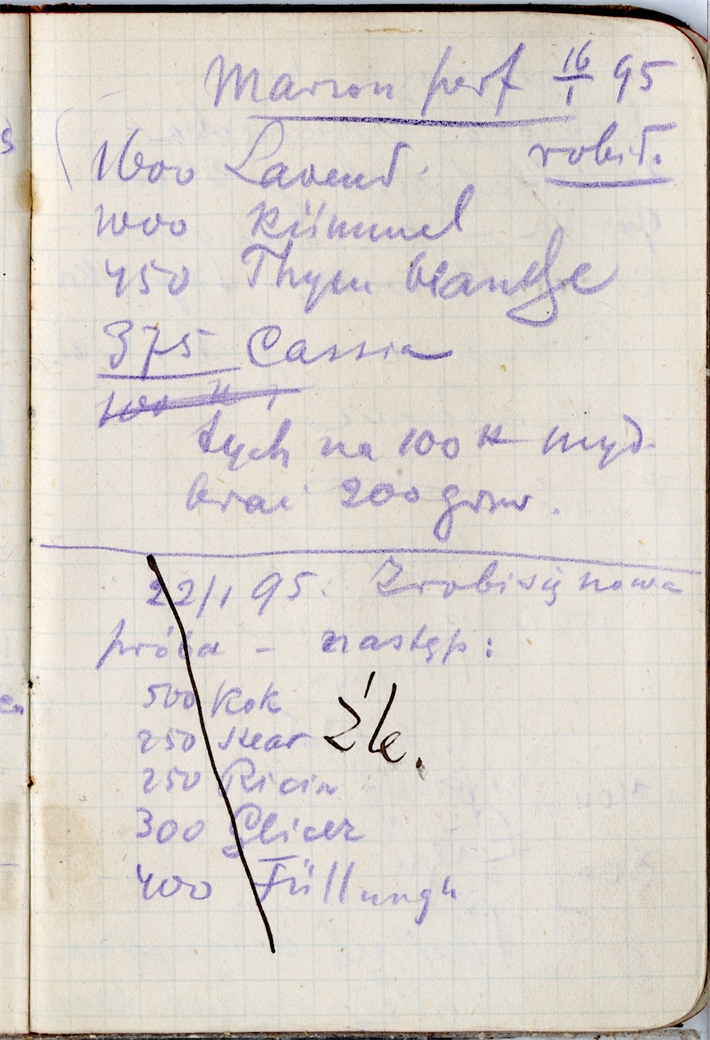 Marron perf 16/1 95
1600 Lavend. robił.
1000 Kümmel
450 Thym blanche
375 Cassia
100 K
tych na 100 K myd.
brać 200 grm.
22/1 95. Zrobi się nowa
próba - następ:
500 Kok
250 Stear Źle.
250 Ricin
300 Glicer
400 Füllungh